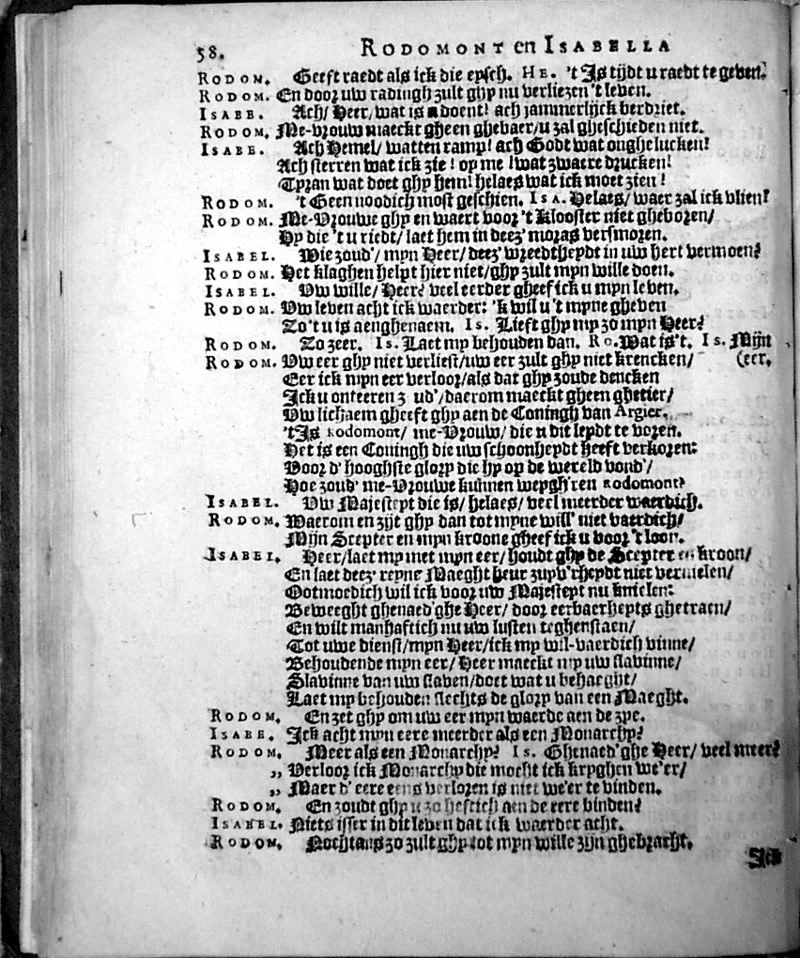 58. RODOMONT en ISABELLA
RODOM. Geeft raedt als ick die eysch. HE. 't Is tijdt u raedt te geven.
RODOM. En door uw radingh zult ghy nu verliezen 't leven.
ISABE. Ach/ Heer/ wat is u doent! ach jammerlijck verdriet.
RODOM. Me-vrouw maeckt gheen ghebaer/ u zal gheschieden niet.
ISABE. Ach Hemel/ watten ramp! ach Godt wat onghelucken!
Ach sterren wat ick zie! op me! wat zwaere drucken!
Tyran wat doet ghy hem! helaes wat ick moet zien!
RODOM. 't Geen noodich most geschien. ISA. Helaes/ waer zal ick vlien?
RODOM. Me-Vrouwe ghy en waert voor 't klooster niet gheboren/
Hy die 't u riedt/ laet hem in deez' moras versmoren.
ISABEL. Wie zoud'/ myn Heer/ deez' wreedtheydt in uw hert vermoen?
RODOM. Het klaghen helpt hier niet/ ghy zult myn wille doen.
ISABEL. Uw wille/ Heer? veel eerder gheef ick u myn leven.
RODOM. Uw leven acht ick waerder: 'k wil u 't myne gheven
Zo 't u is aenghenaem. IS. Lieft ghy my zo myn Heer?
RODOM. Zo zeer. IS. Laet my behouden dan. RO. Wat is't. IS. Mijn
RODOM. Uw eer ghy niet verliest/ uw eer zult ghy niet krencken/ (eer.
Eer ick myn eer verloor/ als dat ghy zoude dencken
Ick u onteeren zoud'/ daerom maeckt gheen ghetier/
Uw lichaem gheeft ghy aen de Coningh van Argier.
't Is Rodomont/ me-Vrouw/ die u dit leydt te voren.
Het is een Coningh die uw schoonheydt heeft verkoren:
Voor d' hooghste glory die hy op de wereld vond'/
Hoe zoud' me-Vrouwe kunnen weygh'ren Rodomont?
ISABEL. Uw Majesteyt die is/ helaes/ veel meerder waerdich.
RODOM. Waerom en zijt ghy dan tot myne will' niet vaerdich/
Mijn Scepter en myn kroone gheef ick u voor 't loon.
ISABEL. Heer/ laet my met myn eer/ houdt ghy de Scepter en kroon/
En laet deez' reyne Maeght heur zuyv'rheydt niet vermelen/
Ootmoedich wil ick voor uw Majesteyt nu knielen:
Beweeght ghenaed'ghe Heer/ door eerbaerheyts ghetraen/
En wilt manhaftich nu uw lusten teghenstaen/
Tot uwe dienst/ myn Heer/ ick my wil-vaerdich vinne/
Behoudende myn eer/ Heer maeckt my uw slavinne/
Slavinne van uw slaven/ doet wat u behaeght/
Laet my behouden slechts de glory van een Maeght.
RODOM. En zet ghy om uw eer myn waerde aen de zye.
ISABE. Ick acht myn eere meerder als een Monarchy?
RODOM. Meer als een Monarchy? IS. Ghenaed'ghe Heer/ veel meer?
„ Verloor ick Monarchy die mocht ick kryghen we'er/
„ Maer d' eere eens verloren is niet we'er te vinden.
RODOM. En zoudt ghy u zo heftich aen de eere binden?
ISABEL. Niets isser in dit leven dat ick waerder acht.
RODOM. Nochtans zo zult ghy tot myn wille zijn ghebracht.